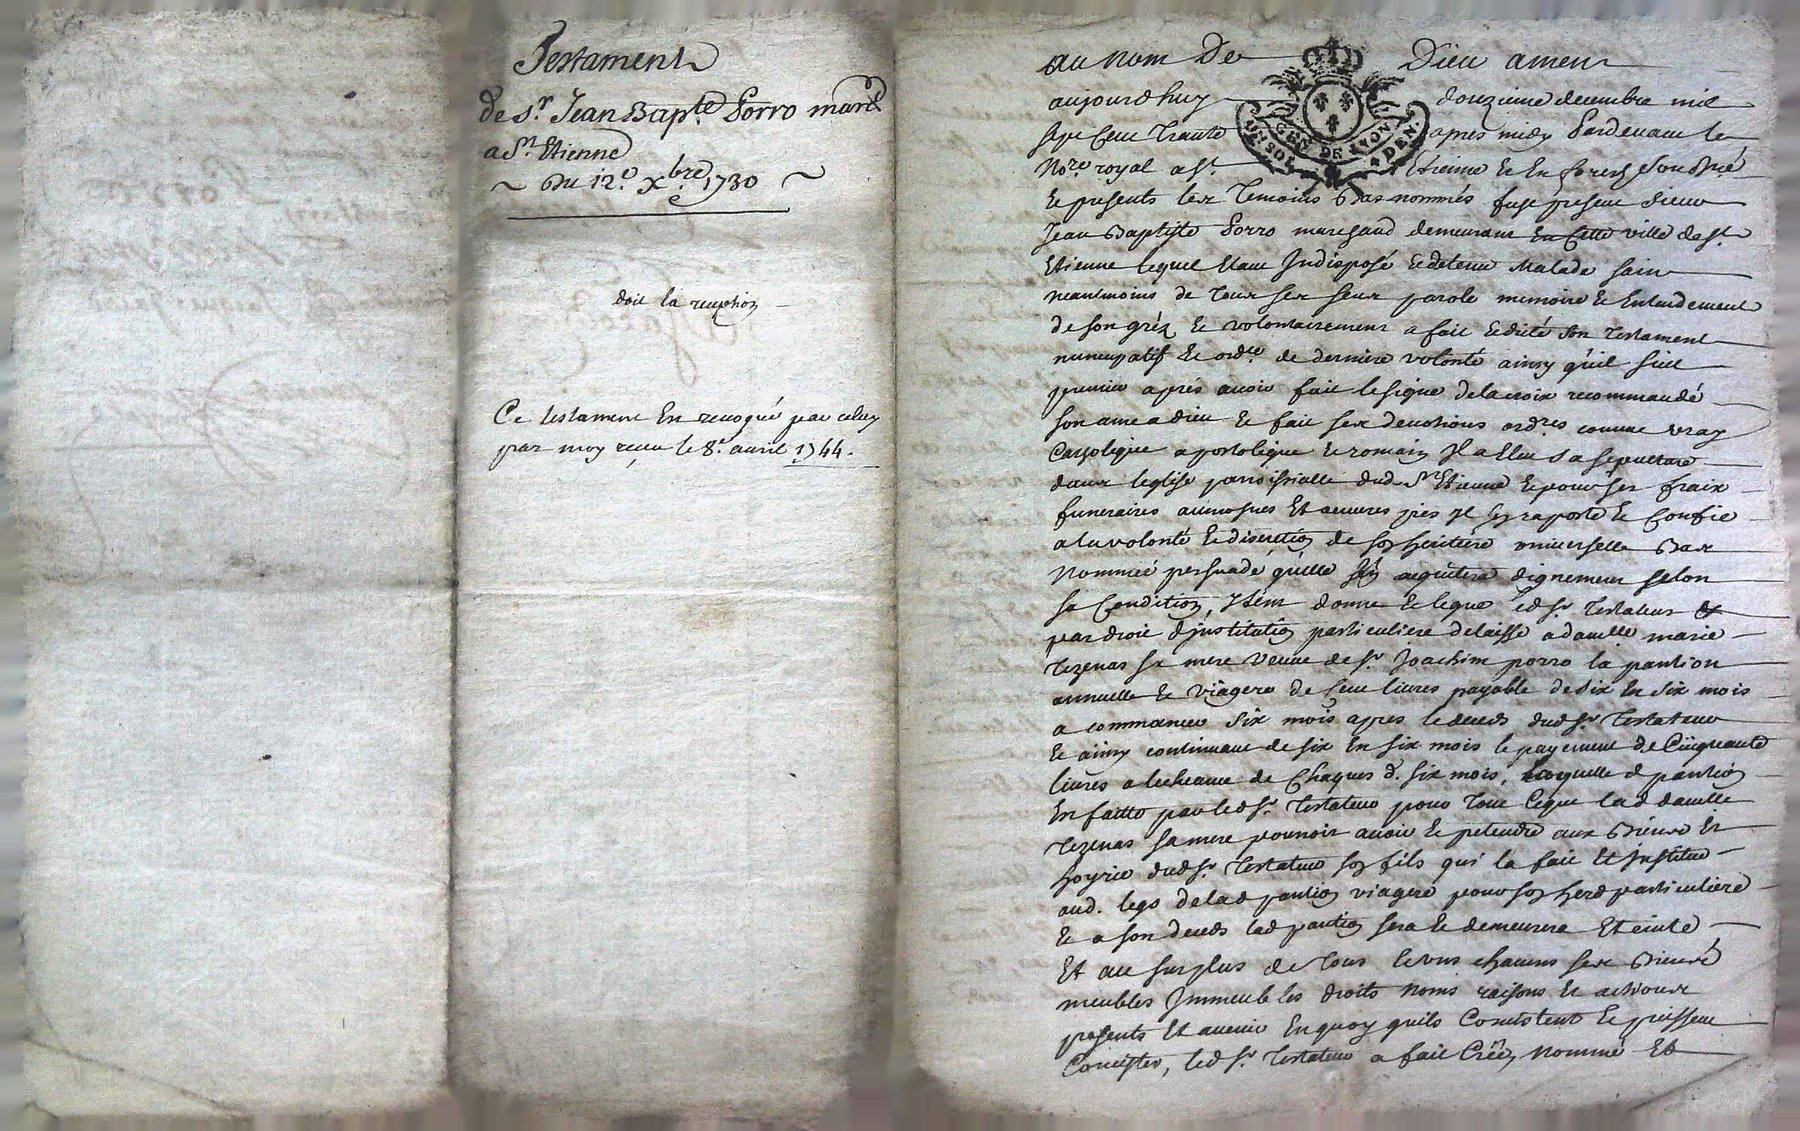 Testament
de Sr. Jean Bapte. Porro mard
a St Etienne
~ Du 12e. Xbre. 1730 ~
doit la reception
Ce testament En revoqué par celuy
par moy receu le 8e. avril 1744.
au nom De Dieu amen
GEN. DE LYON
DE SOL 4 DEN.
aujourdhuy douzieme decembre mil
sept Cent Trante apres midy Pardevant le
Nore. royal a St. Etienne & En forest Sousné
& presents les Temoins Bas nommés fust present Sieur
Jean Baptiste Porro marchand demeurant En Cette ville de St.
Etienne lequel Etant Indisposé & detenu Malade sain
neantmoins de Tous ses sens parole memoire & Entendement
de son gréz & volontairement a fait & dicté son Testament
nuncupatif & ordre. de derniere volonté ainsy qu'il suit
premier après avoir fait le signe de la croix recommandé
son ame a dieu & fait ses devotions ordres comme vray
Catholique apostolique & romain Il a Elu sa sepulture
dans leglise parroissialle dud. St Etienne & pour ses fraix
funeraires aumosnes Et oeuvres pies Il sen raporte & Confie
a la volonté & discretion de son heritiere universelle Bas
Nommée persuadé quelle sen aquitera dignement selon
sa Condition, Item donne & legue led Sr. Testateur
par droit d'institution particuliere delaissé a damlle marie
Tezenas sa mere veuve de Sr. Joachim porro la pantion
annuelle & viagere de Cent livres payable de six En six mois
a commancer six mois apres le deceds dud Sr. Testateur
& ainsy continuant de six En six mois le payement de Cinquante
livres a lecheance de Chaques d. six mois, laquelle d pantion
En faitte par led Sr. Testateur pour Tout Ceque lad damlle
Tezenas sa mere pourroit avoir & pretendre aux Biens &
hoyrie dud Sr. Testateur son fils qui la fait Et Institue
aud. legs de lad pantion viagere pour son herd particuliere
& a son deceds lad pantion sera & demeurera Eteinte
Et au surplus de Tous & uns chacuns ses Biens
meubles Immeubles droits noms raisons & actions
presents Et avenir En quoy quils Consistent & puissent
Consister, led Sr. Testateur a fait Créé, nommé Et